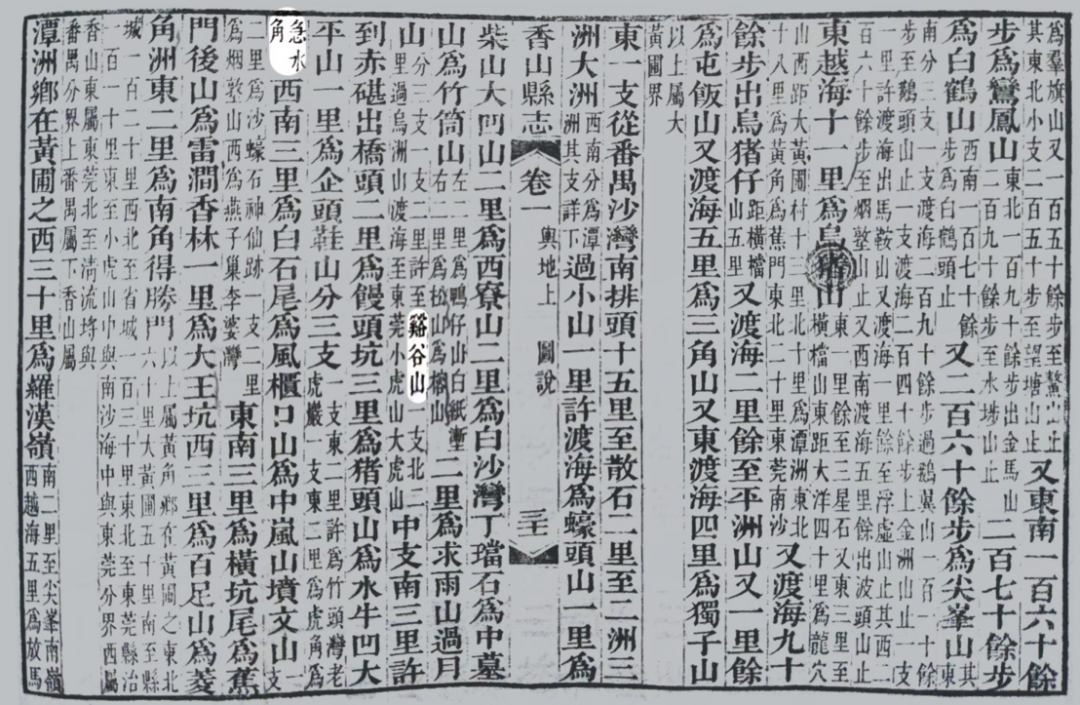 為羣旗山又一百五十餘步至鰲山止
其東北小支二百五十步至望塘山止
又東南一百六十餘
步為鸞鳳山
東北一百九十餘步出金馬山
二百九十餘步至水埗山止
二百七十餘步
為白鶴山
西南一百七十餘
步為白鶴頭
又二百六十餘步為尖峯山
其東
南分三支一支渡海二百九十餘步過鵝翼山一百一十餘
步至鵝頭山止一支渡海二百四十餘步上金洲山止一支
一里許渡海出馬鞍山又渡海一里餘至浮虛山止其西二
百六十餘步至烟墪山止又西南渡海五里餘出波頭山止
東越海十一里為烏豬山
東一里餘至三星石又東三里至
橫檔山東距大洋四十里為龍穴
山西距大黃圃村十三里北十里為潭洲東北
十八里為黃角為蕉門東北二十里東莞南沙
又渡海九十
餘步出烏猪仔
距橫檔
山五里
又渡海二里餘至平洲山又一里餘
為屯飯山又渡海五里為三角山又東渡海四里為獨子山
以上屬大
黃圃界
東一支從番禺沙灣南排頭十五里至散石二里至一洲三
洲大洲
西南分為潭
洲其支詳下
過小山一里許渡海為蠔頭山一里為
香山縣志 卷一 輿地上 圖說 三十
柴山大凹山二里為西寮山二里為白沙灣丁璫石為中墓
山為竹筒山
左二里為鴨仔山白紙壍
右二里為松山為橫山
二里為求雨山過月
山
分三支一支二里許至谿谷山一支北二
里過烏洲山渡海至東莞小虎山大虎山
中支南三里許
到赤磡出橋頭二里為饅頭坑三里為猪頭山為水牛凹大
平山一里為企頭鞋山分三支
一支東二里許為竹頭灣老
虎巖一支東二里為虎角為
急水
角
西南三里為白石尾為風櫃口山為中嵐山墳文山
一支
二里為沙蠔石神仙跡一支二里
為烟墪山西為燕子巢李婆灣
東南三里為橫坑尾為蕉
門後山為雷澗香林一里為大王坑西三里為百足山為菱
角洲東二里為南角得勝門
以上屬黃角鄉在黃圃之東北
六十里大黃圃五十里南至縣
城一百二十里西北至省城一百三十里東北至東莞縣治
一百一十里東至小虎山中與南沙海中與東莞分界西屬
香山東屬東莞北至清流埒與
番禺分界上番禺屬下香山屬
潭洲鄉在黃圃之西三十里為羅漢嶺
南二里至尖峯南嶺
西越海五里為放馬